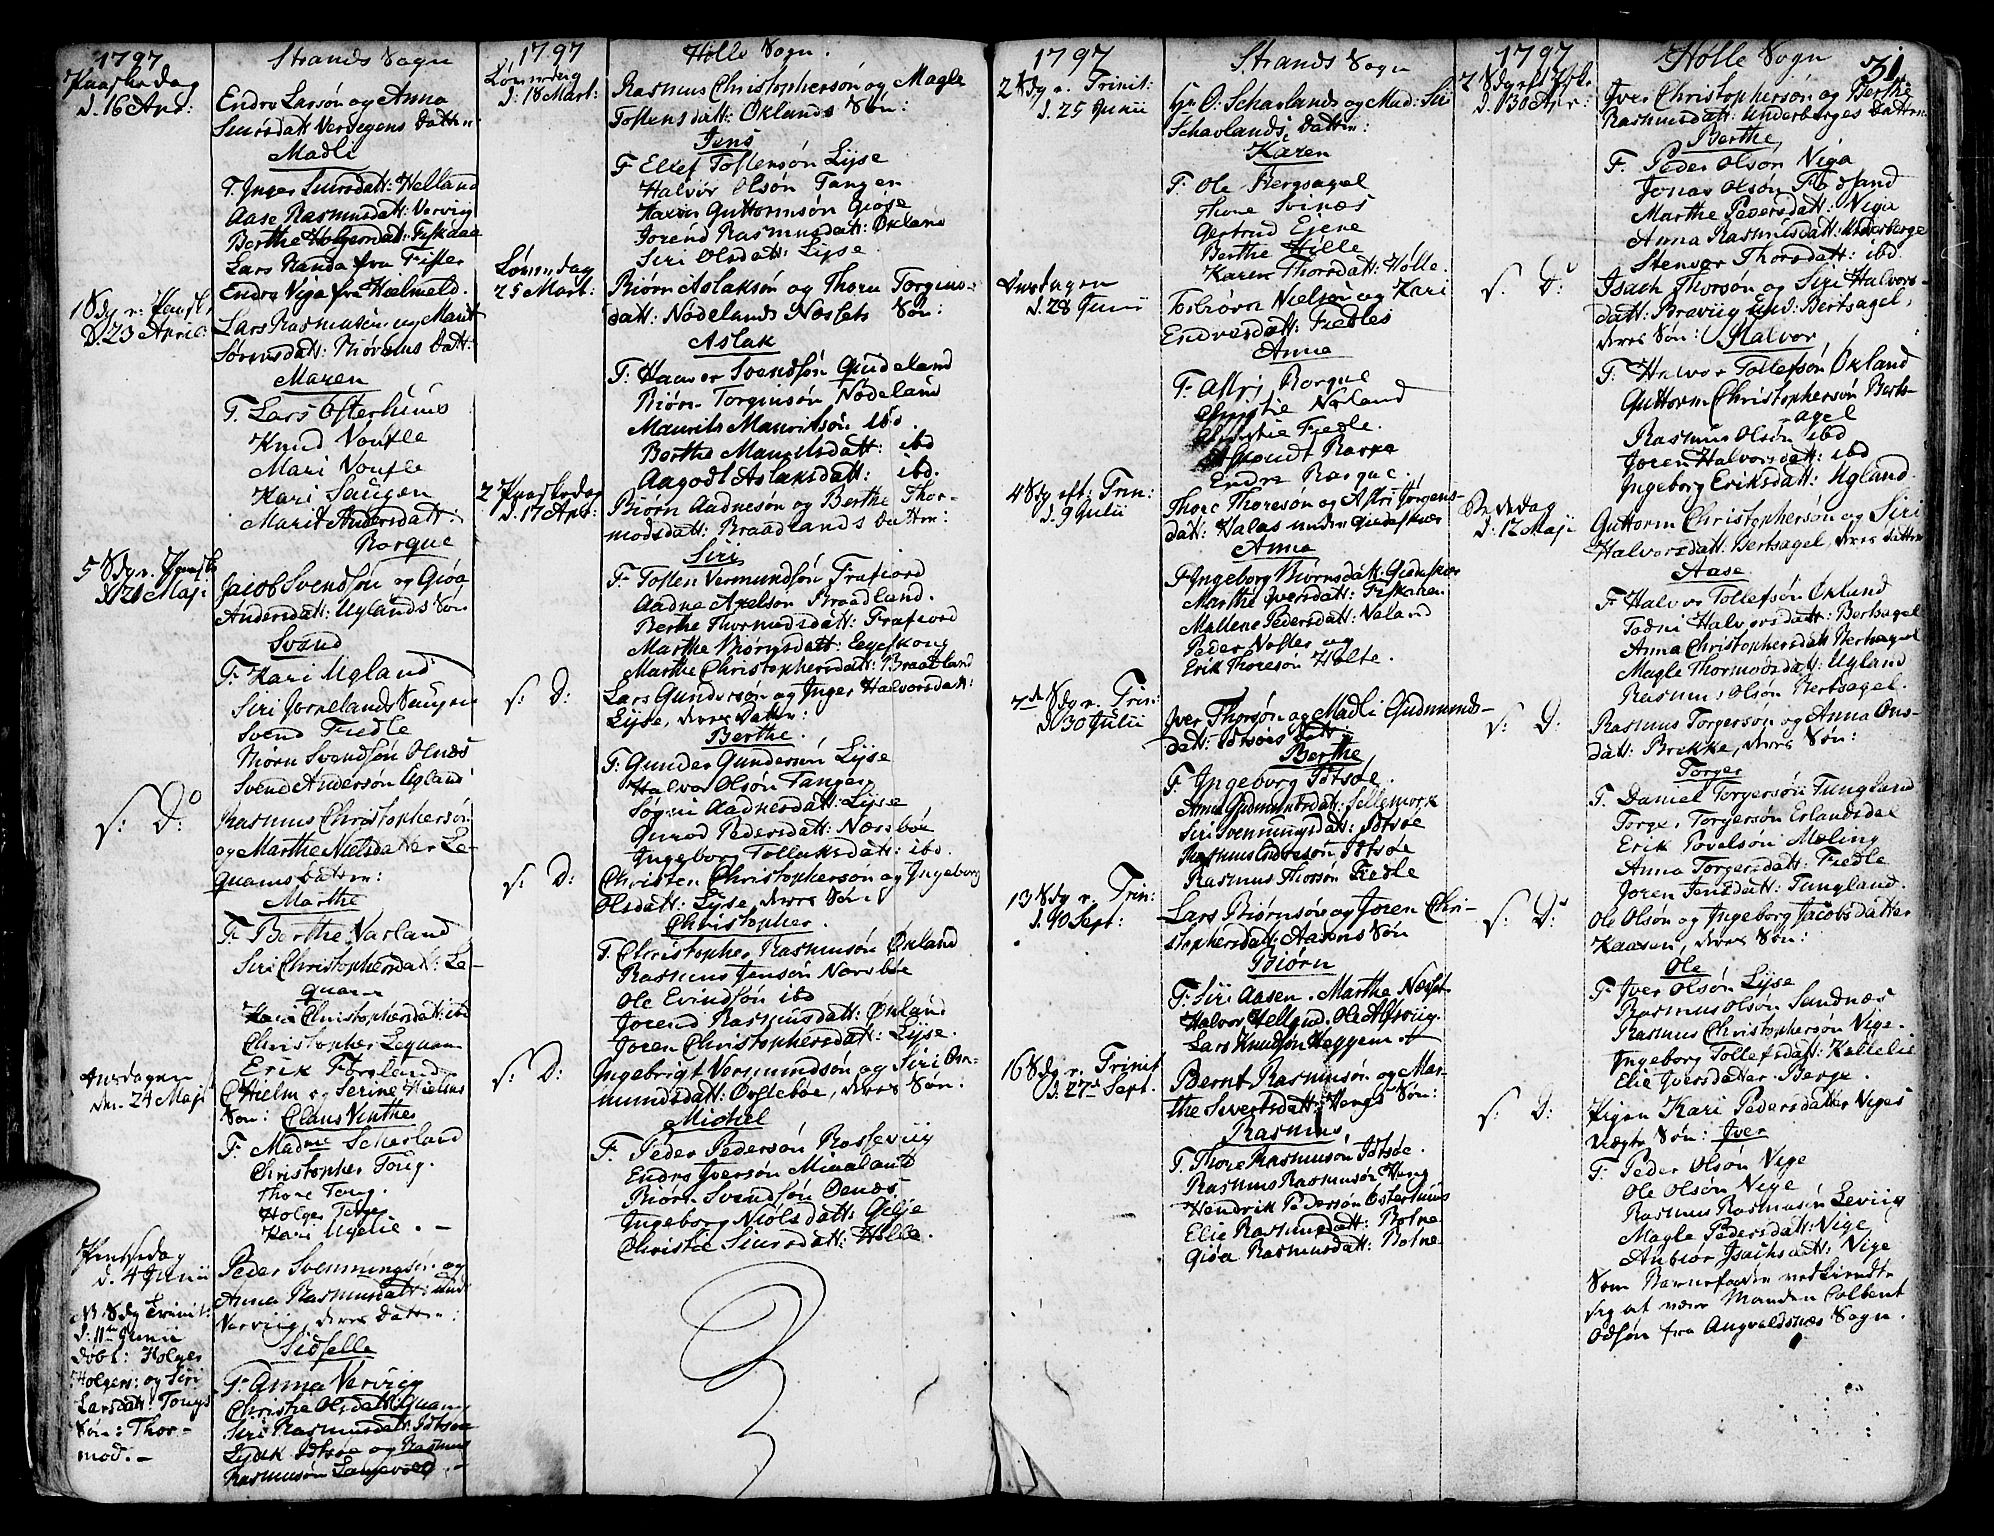 1797
Strands Sogn
Paaskedag
d. 16 Apr:
Endre Larsøn og Anna
Siursdatt Vervigens Datter
Madli
F. Inger Siursdatt: Helland
Aase Rasmusdatt: Vervig
Berthe Holgersdat: Fiskaae
Lars Randa fra Fister
Endre Viga fra Hielmeld.
1 Sdg p. Paask
d. 23 April
Lars Rasmusen og Marit
Sørensdatt: Datt:
Maren
F. Lars Osterhuus
Knud Voufle
Mari Voufle
Kari Saugen
Marit Andersdatt:
Rorque
5 Sdg p. Paask
d. 21 Maji
Jacob Svendsøn og Giøa
Andersdatt: Uglands Søn
Svend
F. Kari Ugland
Siri Jørnelands Saugen
Svend Fiedle
Biørn Svendsøn Olnæs
Svend Andersøn Ugland
S: D:
Rasmus Christophersøn
og Marthe Nielsdatter Le-
quams Datter:
Marthe
F. Berthe Varland
Siri Christophersdatt: Le-
quam
Kari Christophersdatt: ibd
Christopher Lequam
Erik Forsland
Onsdagen
den 24 Maji
C Hielm og Serine Hielms
Søn: Claus Venthe
F. Madme Schersland
Christopher Toug.
Thore Toug.
Holger Toug
Kari Ugelie. -
Pintsedag
d. 4 Junii
Peder Svenningsøn og
Anna Rasmusdatt: und
Vervig, deres Datter:
Sidselle
F. Anna Vervig
Christie Olsdatt: Quam
Siri Rasmusdatt: Idtsøe
Lydek Idtsøe og Rasmus
Rasmusøn Langevold. -
NB. Sdg Trinit:
d: 11te Junii
døbt: Holger
Holgers: og Siri
Larsdatt: Tougs
Søn: Thor-
mod. -
1797
Hølle Sogn.
Løverdag
d: 18 Mart:
Rasmus Christophersøn og Magle
Tostensdatt: Øklands Søn:
Jens
F. Ellef Tostensøn Lyse
Halvor Olsøn Tangen
Haavor Guttormsøn Giøse
Jorend Rasmusdatt: Økland
Siri Olsdatt: Lyse
Løverdag
25 Mart:
Biørn Aslaksøn og Thora Torgius-
datt: Nødelands Næssets Søn:
Aslak
F: Haavor Svendsøn Gudeland
Biørn Torgiusøn Nødeland
Maurits Mauritsøn ibd.
Berthe Mauritsdatt: ibd
Aagodt Aslaksdatt: ibd.
2 Paaskedag
d. 17 Apr:
Biørn Aadnesøn og Berthe Thor-
modsdatt: Braadlands Datter:
Siri
F. Tosten Vermundsøn Frafiord
Aadne Axelsøn Braadland.
Berthe Thormodsdatt: Frafiord
Marthe Biørnsdatt: Egeskog
Marthe Christophersdatt: Braadland
S: D:
Lars Gundersøn og Inger Halvorsdatt:
Lyse, deres Datter:
Berthe.
F: Gunder Gundersøn Lyse
Halvor Olsøn Tangen
Sogni Aadnesdatt: Lyse
Guroe Pedersdatt: Næsbøe
Ingeborg Tollaksdatt: ibd.
S: D:
Christen Christophersøn og Ingeborg
Olsdatt: Lyse, deres Søn:
Christopher
F. Christopher Rasmusøn Økland
Rasmus Jensøn Næsbøe
Ole Evindsøn ibd
Jorend Rasmusdatt: Økland
Joren Christophersdatt: Lyse.
S: D:
Ingebrigt Vermundsøn og Siri Om-
mundsdatt: Ørstebøe, deres Søn:
Michel
F. Peder Pedersøn Rossevig
Endre Iversøn Mioeland
Biørn Svendsøn Oenæs
Ingeborg Niølsdatt: Gilje
Christie Siursdatt: Hølle.
1797
Strands Sogn
2 Sdg p. Trinit:
d. 25 Junii
Hr O. Schavlands og Mad: Siri
Schavlands, Datter:
Karen
F. Ole Bergsagel
Thore Svinæs
Gertrud Eiene
Berthe Hølle
Karen Thorsdatt: Hølle.
Onsdagen
d. 28 Junii
Torbiørn Nielsøn og Kari
Endresdatt: Fiedles
Anna
F. Astri Rorque
Christie Nøland
Christie Fiedle.
Asmondt Rorke
Endre Rorque.
4 Sdg eft: Trin:
d. 9 Julii
Thore Thoresøn og Astri Jørgens-
datt: Halas under Gudeskær
Anna
F. Ingeborg Biørnsdatt: Gideskær
Marthe Iversdatt: Fiskaaen.
Mallene Pedersdatt: Nøland
Peder Nøster og
Erik Thoresøn Holte.
7de Sdg p. Trin:
d. 30 Julii
Iver Thorsøn og Madli Gudmunds-
datt: Idtsøes Datt:
Berthe
F. Ingeborg Idtsøe.
Anna Gudmundsdatt: Sellemork
Siri Svenningsdatt: Idtsøe
Rasmus Endresøn Idtsøe
Rasmus Thorsøn Fiedle
13 Sdg p. Trin:
d. 10 Sept:
Lars Biørnsøn og Joren Chri-
stophersdatt: Aasens Søn
Biørn
F: Siri Aasen. Marthe Næset
Halvor Hellgud. Ole Alsvig.
Lars Knudsøn Heggem.
16 Sdg p. Trinit
d. 27de Sept.
Bernt Rasmusøn og Mar-
the Sivertsdatt: Vengs Søn:
Rasmus
F. Thore Rasmusøn Idtsøe.
Rasmus Rasmusøn Heng
Hendrik Pedersøn Østerhuus
Elie Rasmusdatt: Botne
Giøa Rasmusdatt: Botne
1797
Hølle Sogn 31
2 Sdg eft Paaske
d. 30 Apr:
Iver Christophersøn og Berthe
Rasmusdatt: Underberges Datter
Berthe
F. Peder Olsøn Niga
Jonas Olsøn Fløsand
Marthe Pedersdatt: Niga
Anna Rasmusdatt: Underberge
Stenvor Thorsdatt: ibd.
S: D:
Isach Thorsøn og Siri Halvors-
datt: Bravig und: Bertsagel,
deres Søn: Halvor,
F. Halvor Tollefsøn Økland
Guttorm Christophersøn Berts-
agel
Rasmus Olsøn ibd
Joren Halvorsdatt: ibd
Ingeborg Eriksdatt: Ugland
Bededag
d: 12 Maji
Guttorm Christophersøn og Siri
Halvorsdatt: Bertsagel, deres Datter
Aase
F. Halvor Tollefsøn Økland
Todni Halvorsdatt: Bertsagel
Anna Christophersdatt Bertsagel
Magle Thormodsdatt: Ugland
Rasmus Olsøn Bertsagel.
S: D:
Rasmus Torgersøn og Anna Ons-
datt: Brekke, deres Søn:
Torger
F. Daniel Torgersøn Fungland
Torger Torgersøn Erlandsdal
Erik Povelsøn Mæling
Anna Torgersdatt: Fiedle
Joren Jensdatt: Tungland.
S: D:
Ole Olsøn og Ingeborg Jacobsdatter
Kaasen, deres Søn:
Ole
F. Iver Olsøn Lyse
Rasmus Olsøn Sandnæs
Rasmus Christophersøn Nige.
Ingeborg Tollefsdatt: Kallelie
Elie Iversdatter Berge.
S: D:
Pigen Kari Pedersdatter Niges
uægte Søn: Iver
F. Peder Olsøn Nige
Ole Olsøn Nige
Rasmus Rasmusøn Levig
Magle Pedersdatt: Nige
Anbiør Isachsdatt: Nige
Som Barnefader vedkiendte
sig at være Manden Colbent
Odsøn fra Augvaldsnæs Sogn.